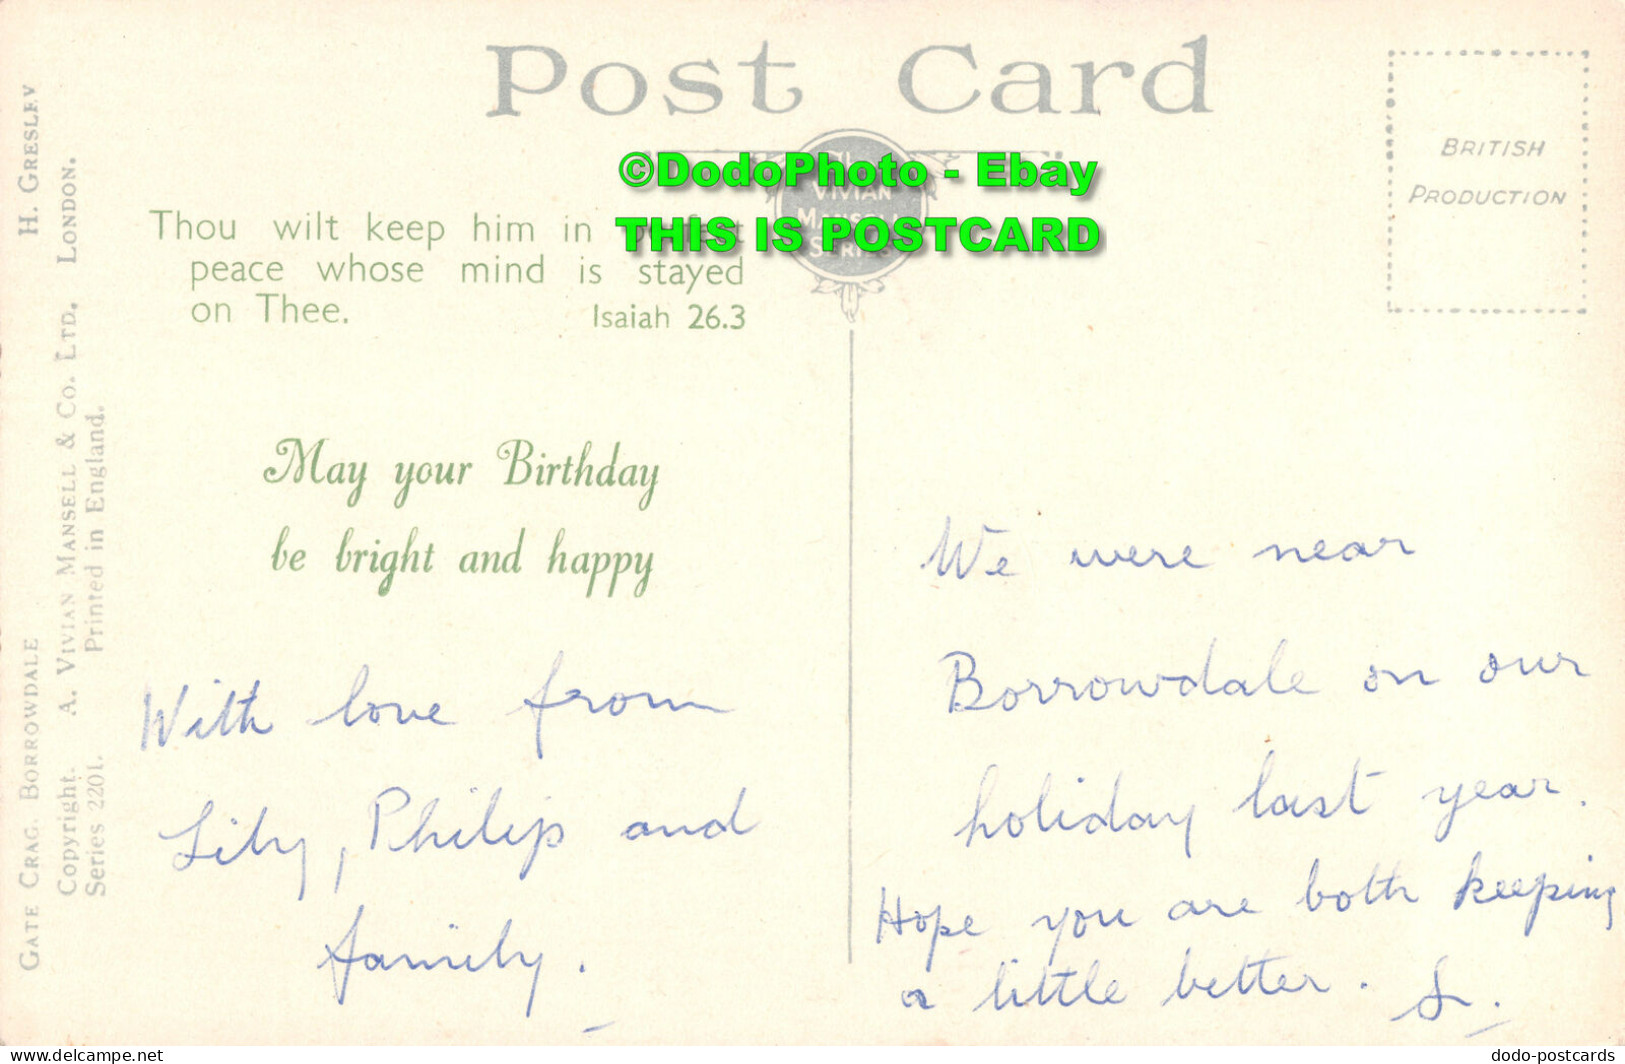 Post Card
The
VIVIAN
MANSELL
SERIES
©DodoPhoto - Ebay
THIS IS POSTCARD
BRITISH
PRODUCTION
Thou wilt keep him in perfect
peace whose mind is stayed
on Thee.
Isaiah 26.3
May your Birthday
be bright and happy
With love from
Lily, Philip and
family.
We were near
Borrowdale on our
holiday last year.
Hope you are both keeping
a little better. L.
GATE CRAG. BORROWDALE H. GRESLEY
Copyright. A. VIVIAN MANSELL & CO. LTD. LONDON.
Series 2201. Printed in England.
www.delcampe.net
dodo-postcards